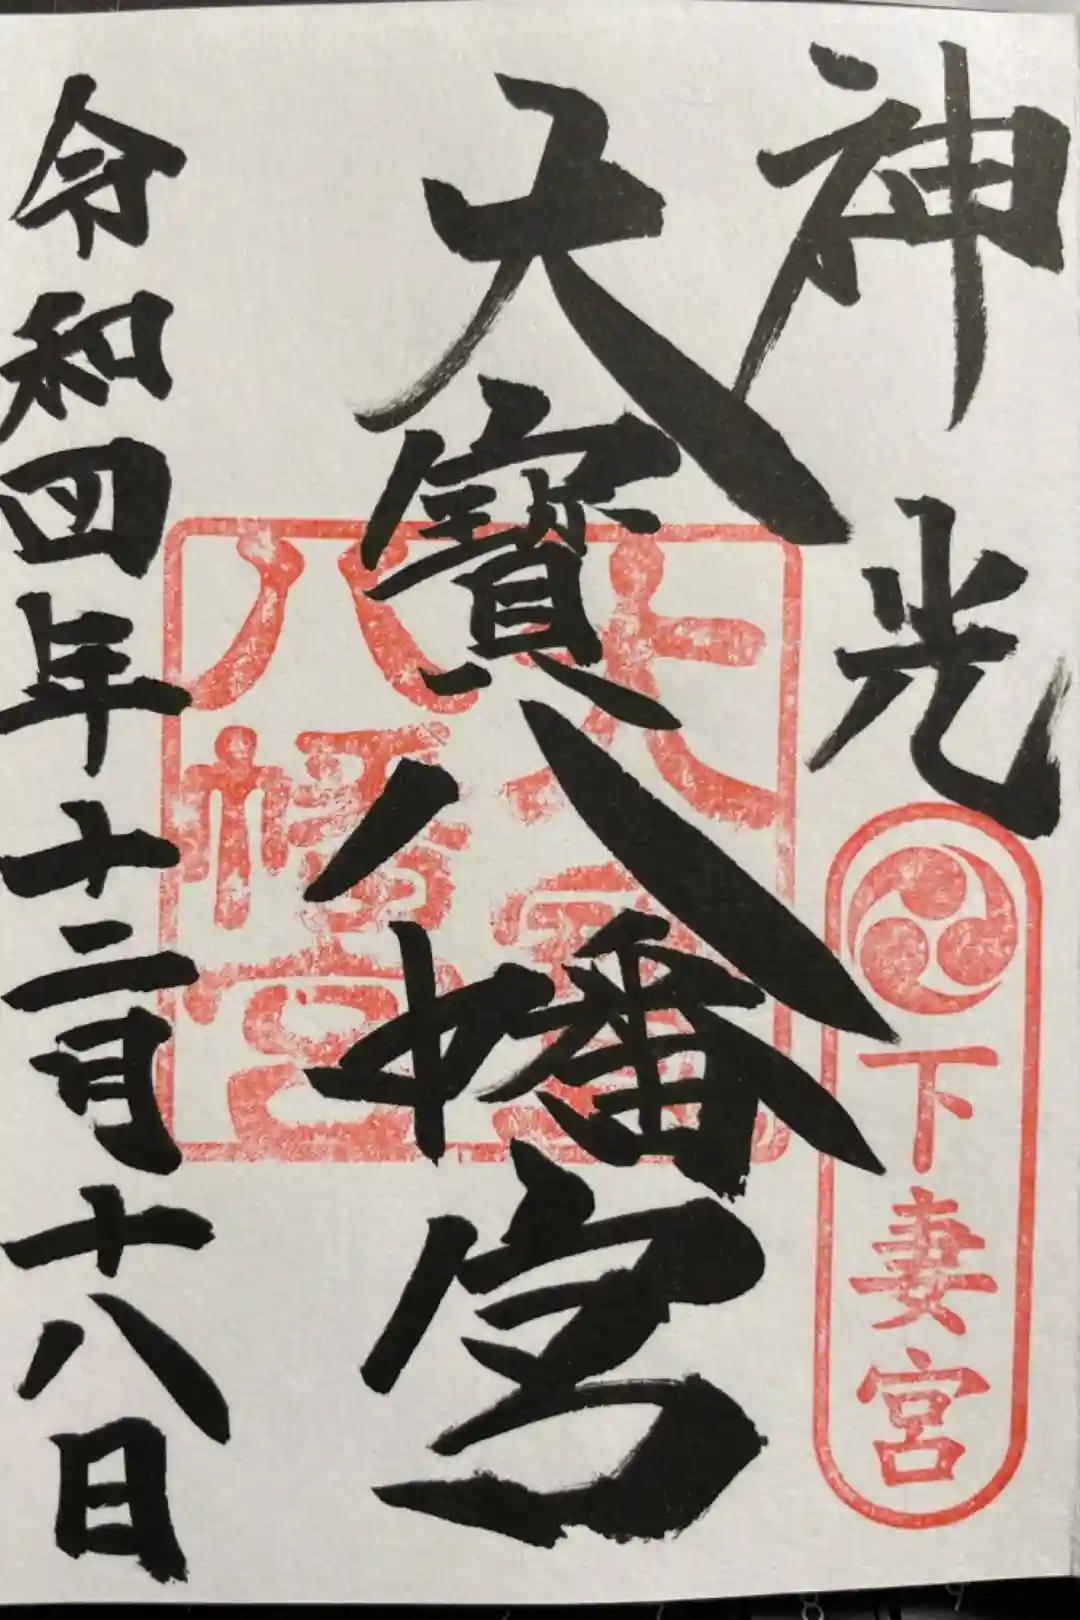 神光
下妻宮
大寶八幡宮
大寶
八幡宮
令和四年十二月十八日